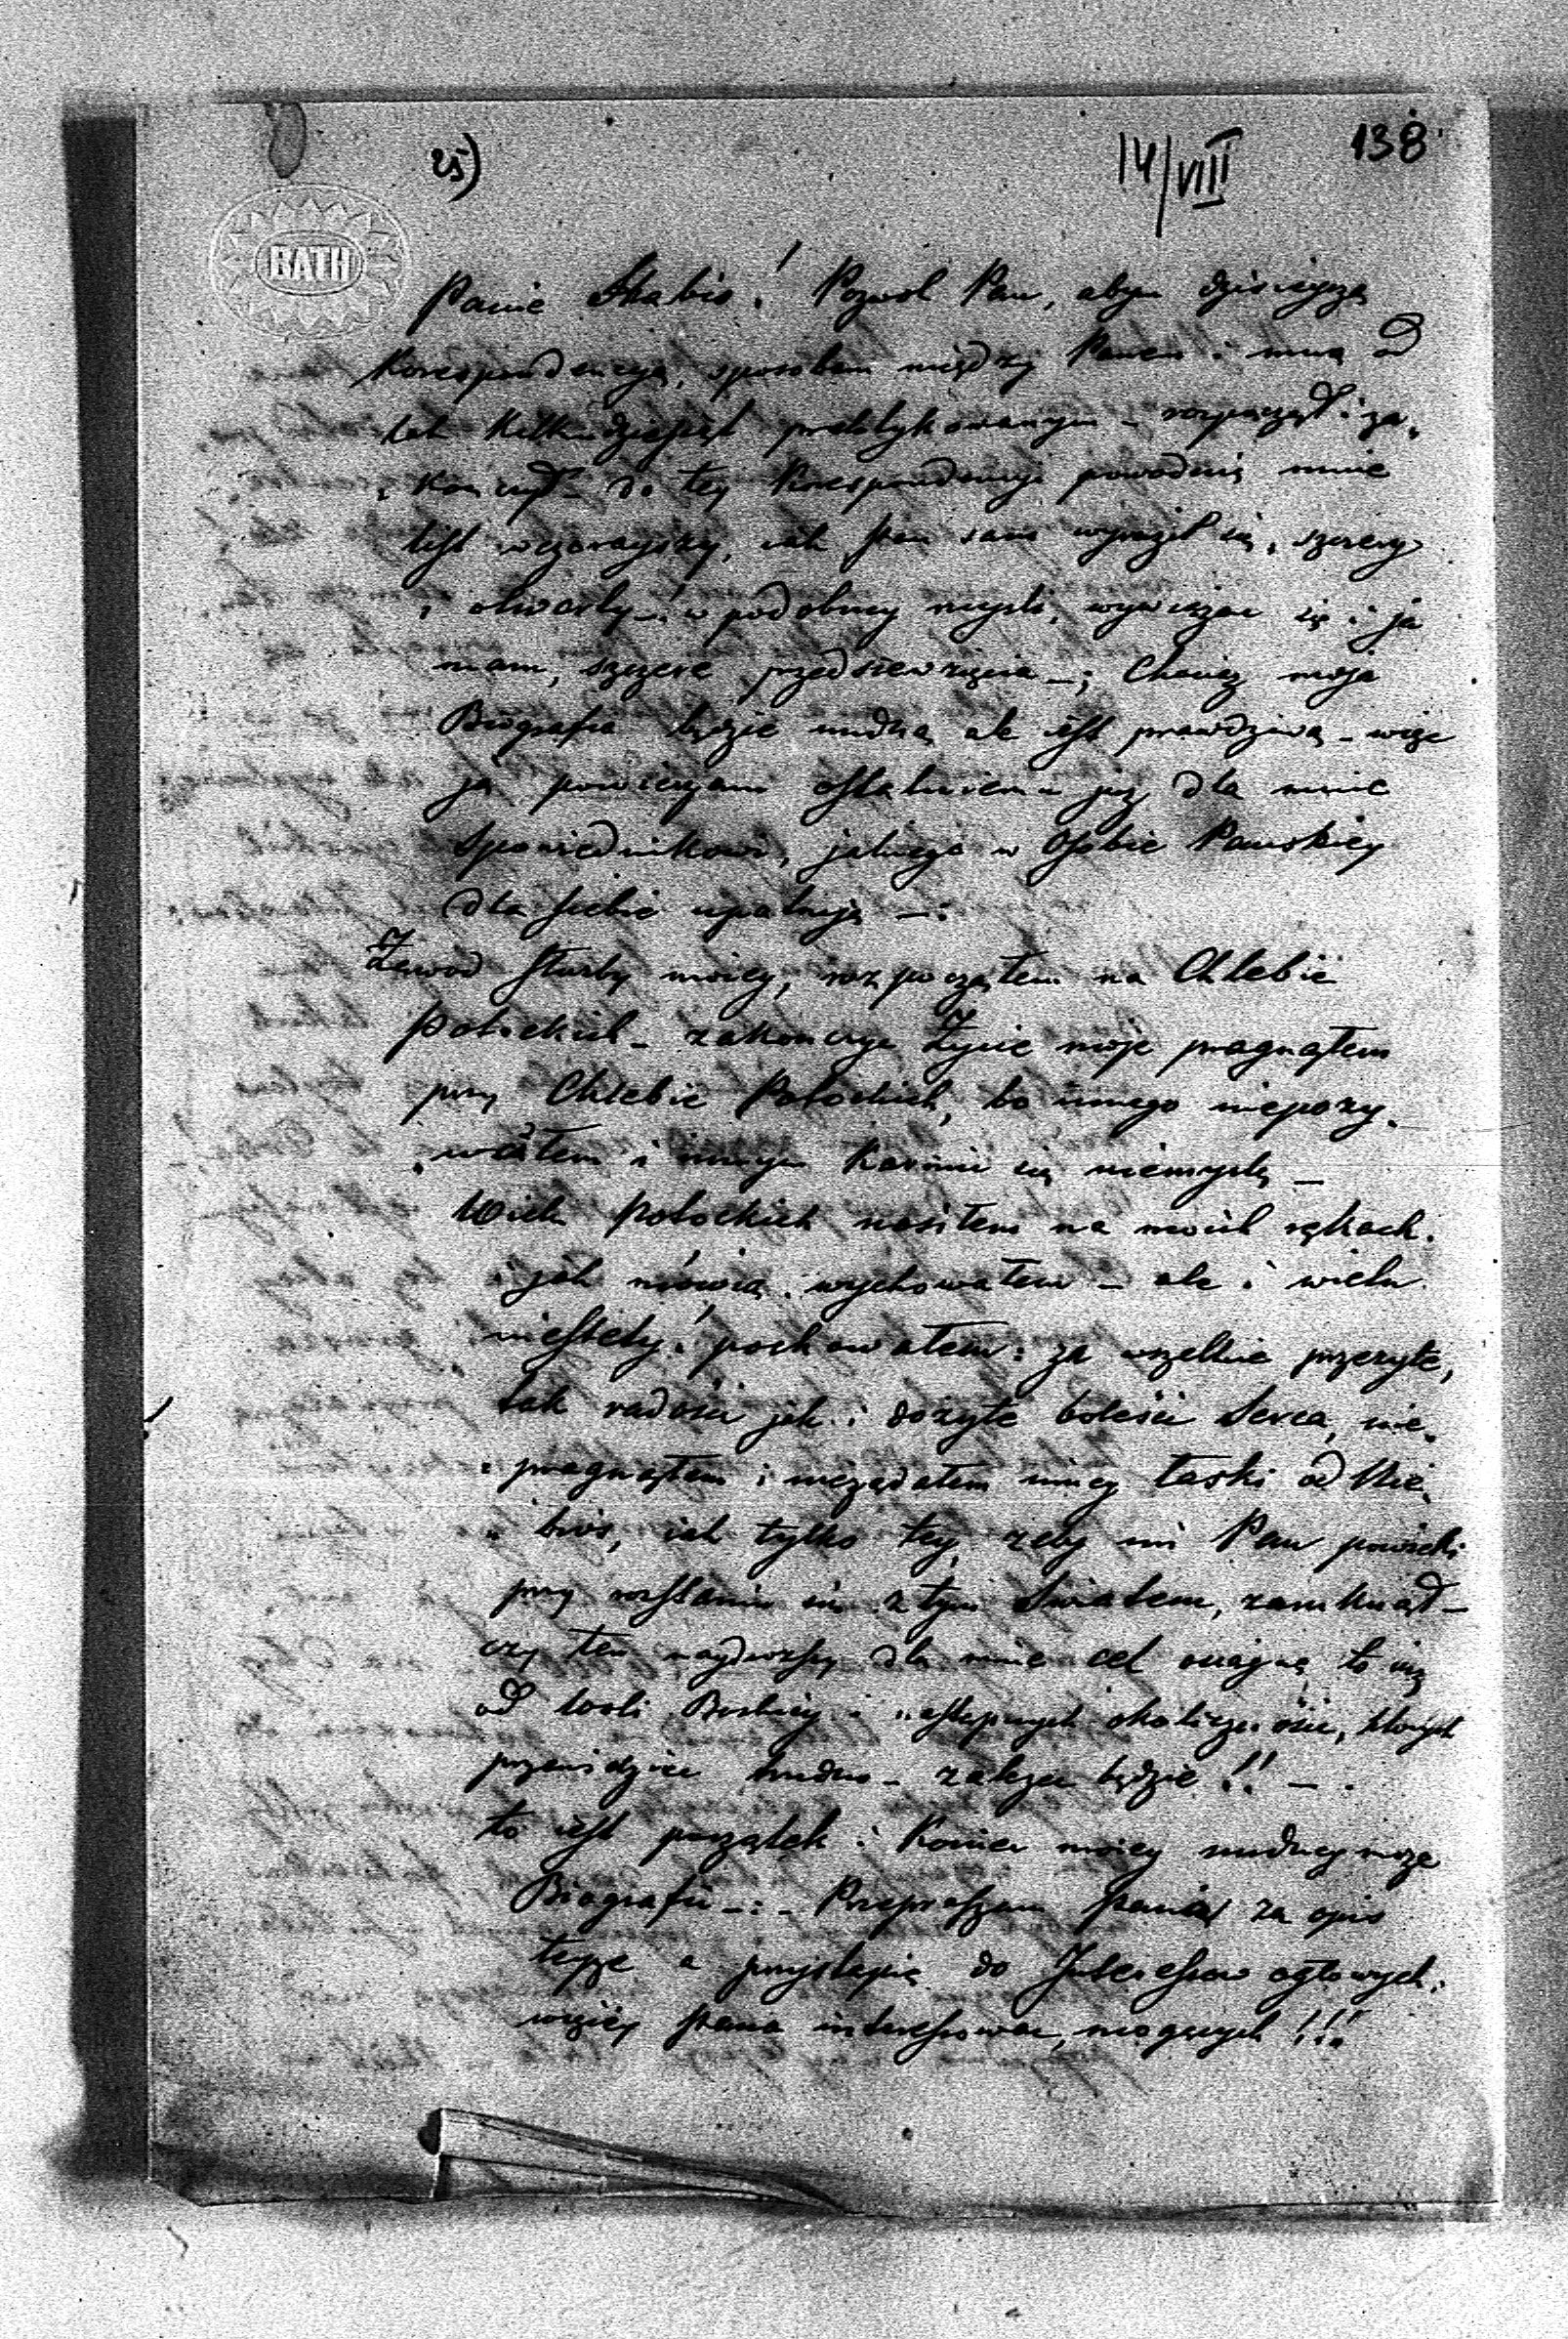 25)
14/VIII
138
BATH
Panie Hrabio! Pozwól Pan, abym dzisieyszą
Korespondencyą, sposobem między Panem i mną od
lat Kilkudziesiąt praktykowanym – rozpocząć i za„
„kończyć – do tey Korespondencyi powodują mnie
list wczorayszy, iak Pan sam wyraził się, szczery
i otwarty – i w podobney myśli, wywiązać się i ja
mam, szczere przedsiewzięcia –; Chociaż moja
Biografia będzie nudną ale iest prawdziwą – więc
ja powierzam ostatniemu już dla mnie
Spowiednikowi, jakiego w Osobie Pańskiey
dla siebie upatruję –:
Zawod służby moiey, rozpocząłem na Chlebie
Potockich – zakończyć Życie moje pragnąłem
przy Chlebie Potockich, bo innego niepoży„
„wałem i innym Karmić się niemyślę –
Wielu Potockich nosiłem na moich rękach.
jak mówią wychowałem – ale i wielu
niestety! pochowałem: za wszelkie przeżyte,
tak radości jak i dożyte boleści Serca, nie„
„pragnąłem i nieżądałem inney łaski od Nie„
„bios, iak tylko tey, żeby mi Pan powieki
przy rozstaniu się z tym Światem, zamknął –
czy ten naydroższy dla mnie cel osiągnę to iuż
od woli Boskiey i następnych okoliczności, których
przewidzieć trudno – zależeć będzie!! – .
to iest początek i Koniec moiey nudney może
Biografii –:– Przepraszam Pana za opis
teyże a przystępię do Interesów ogłowych:
więcey Pana interesować mogących!!!